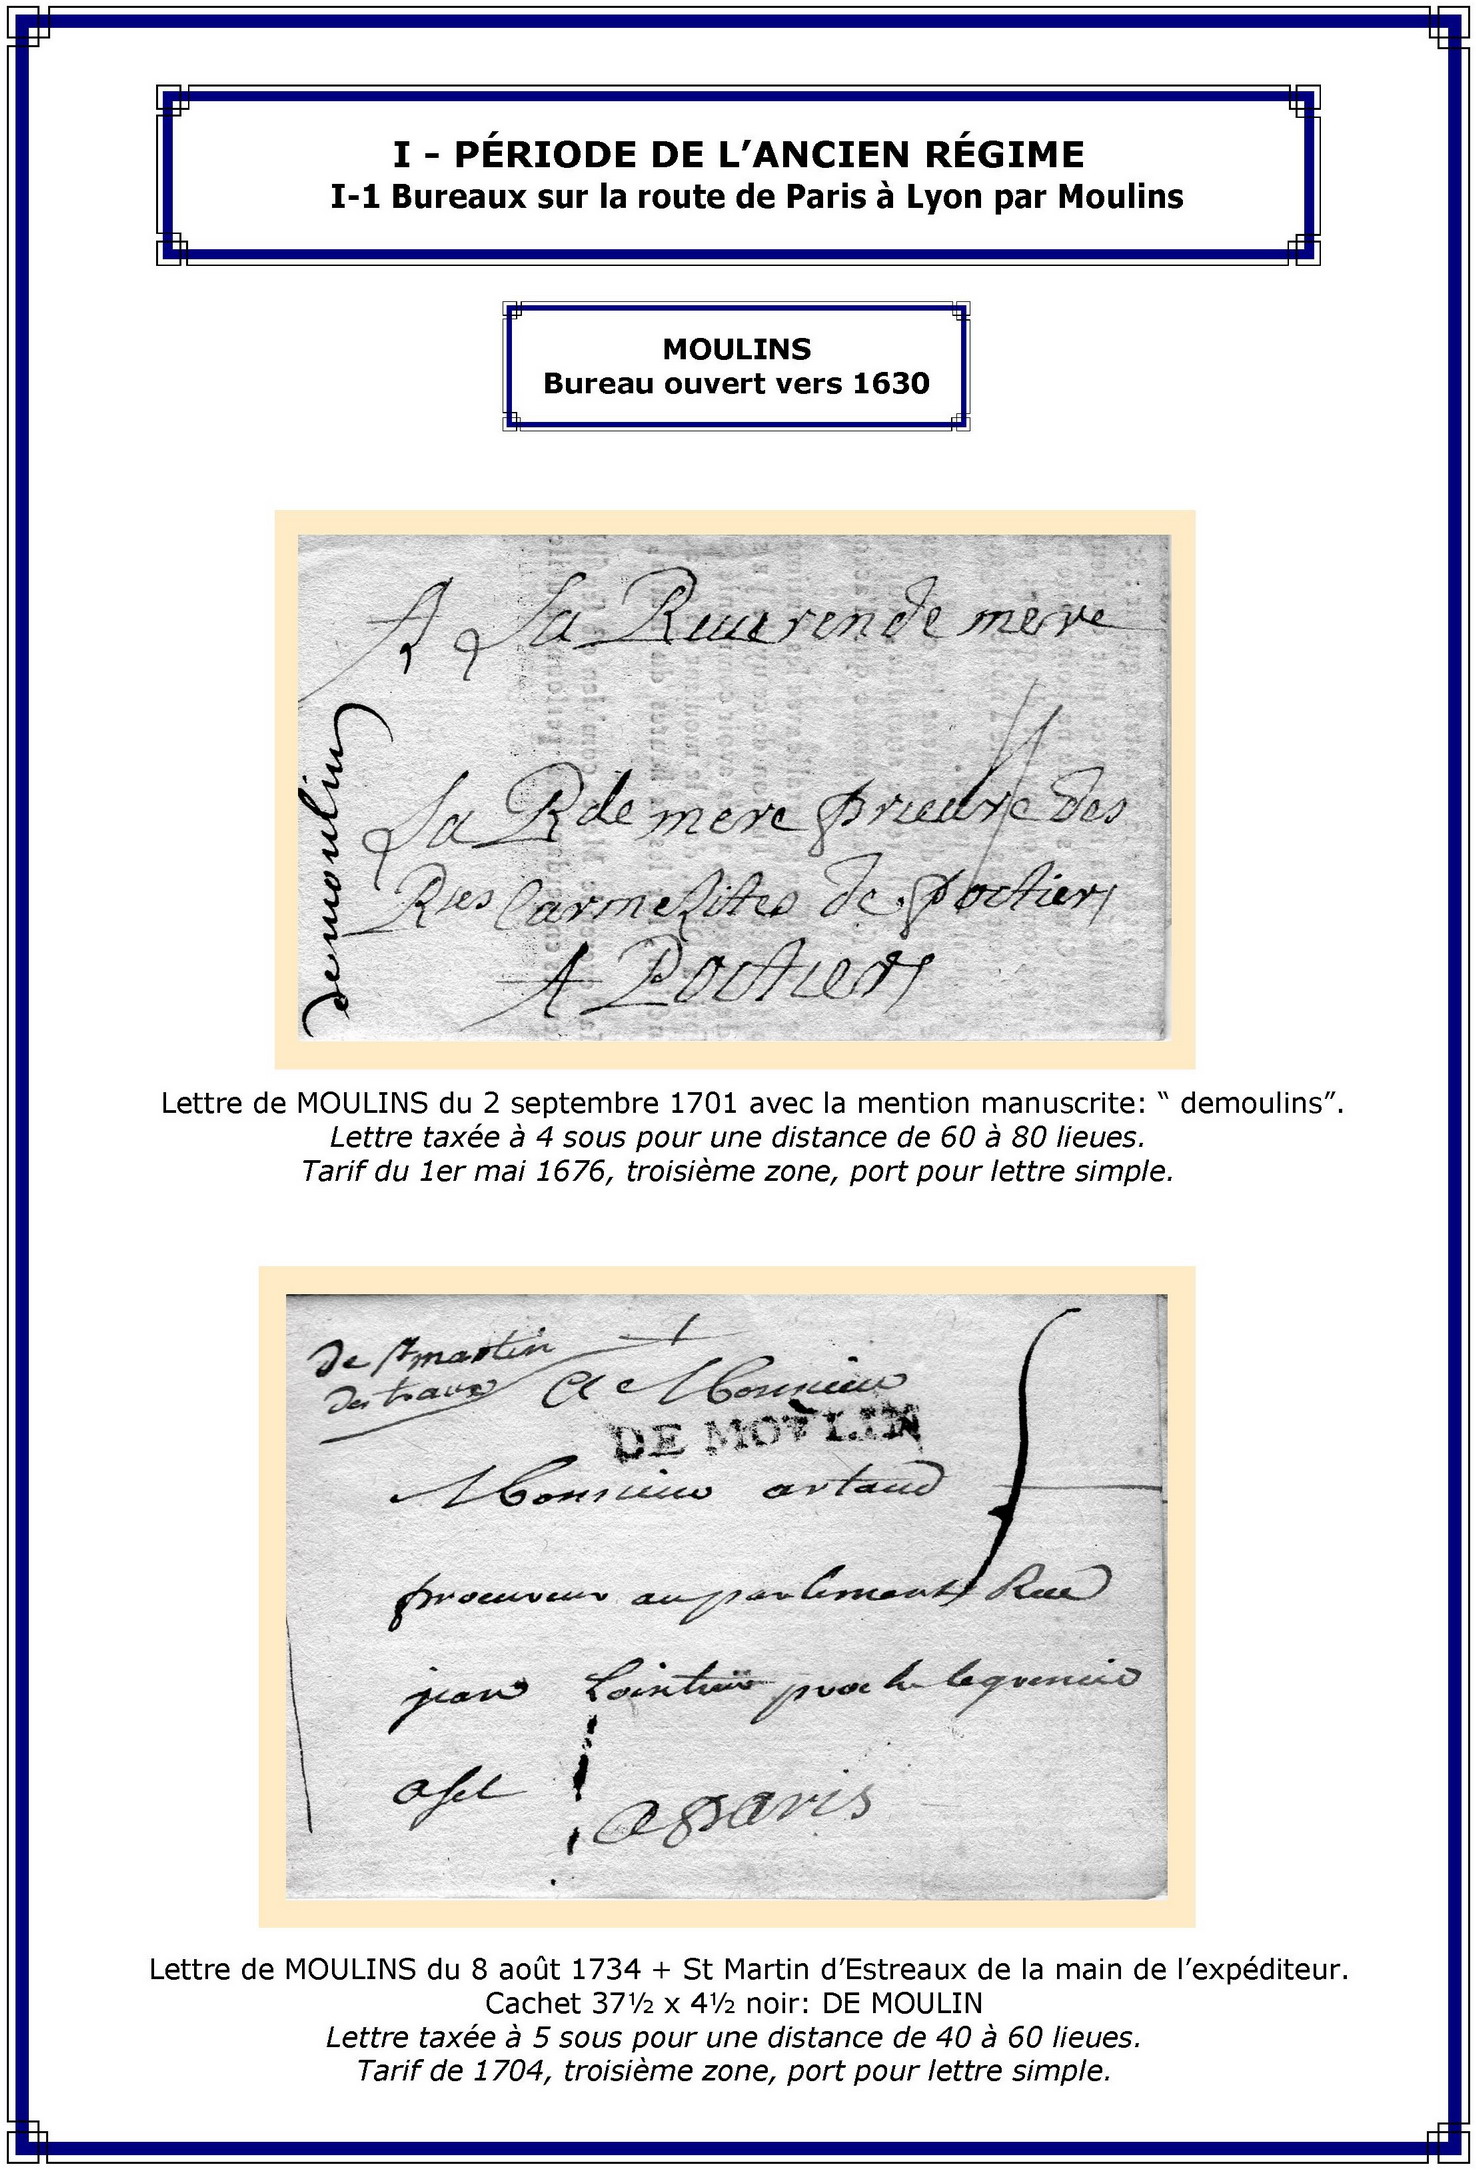 I - PÉRIODE DE L’ANCIEN RÉGIME
I-1 Bureaux sur la route de Paris à Lyon par Moulins
MOULINS
Bureau ouvert vers 1630
A La Reuerende mere
demoulin
La Rde mere prieure des
Rses Carmelites de poctiers
A Poctiers
Lettre de MOULINS du 2 septembre 1701 avec la mention manuscrite: “ demoulins”.
Lettre taxée à 4 sous pour une distance de 60 à 80 lieues.
Tarif du 1er mai 1676, troisième zone, port pour lettre simple.
De st martin
des traux
A Monsieur
DE MOVLIN
Monsieur artaud
procureur au parlement Rue
jean proche
a paris
Lettre de MOULINS du 8 août 1734 + St Martin d’Estreaux de la main de l’expéditeur.
Cachet 37½ x 4½ noir: DE MOULIN
Lettre taxée à 5 sous pour une distance de 40 à 60 lieues.
Tarif de 1704, troisième zone, port pour lettre simple.